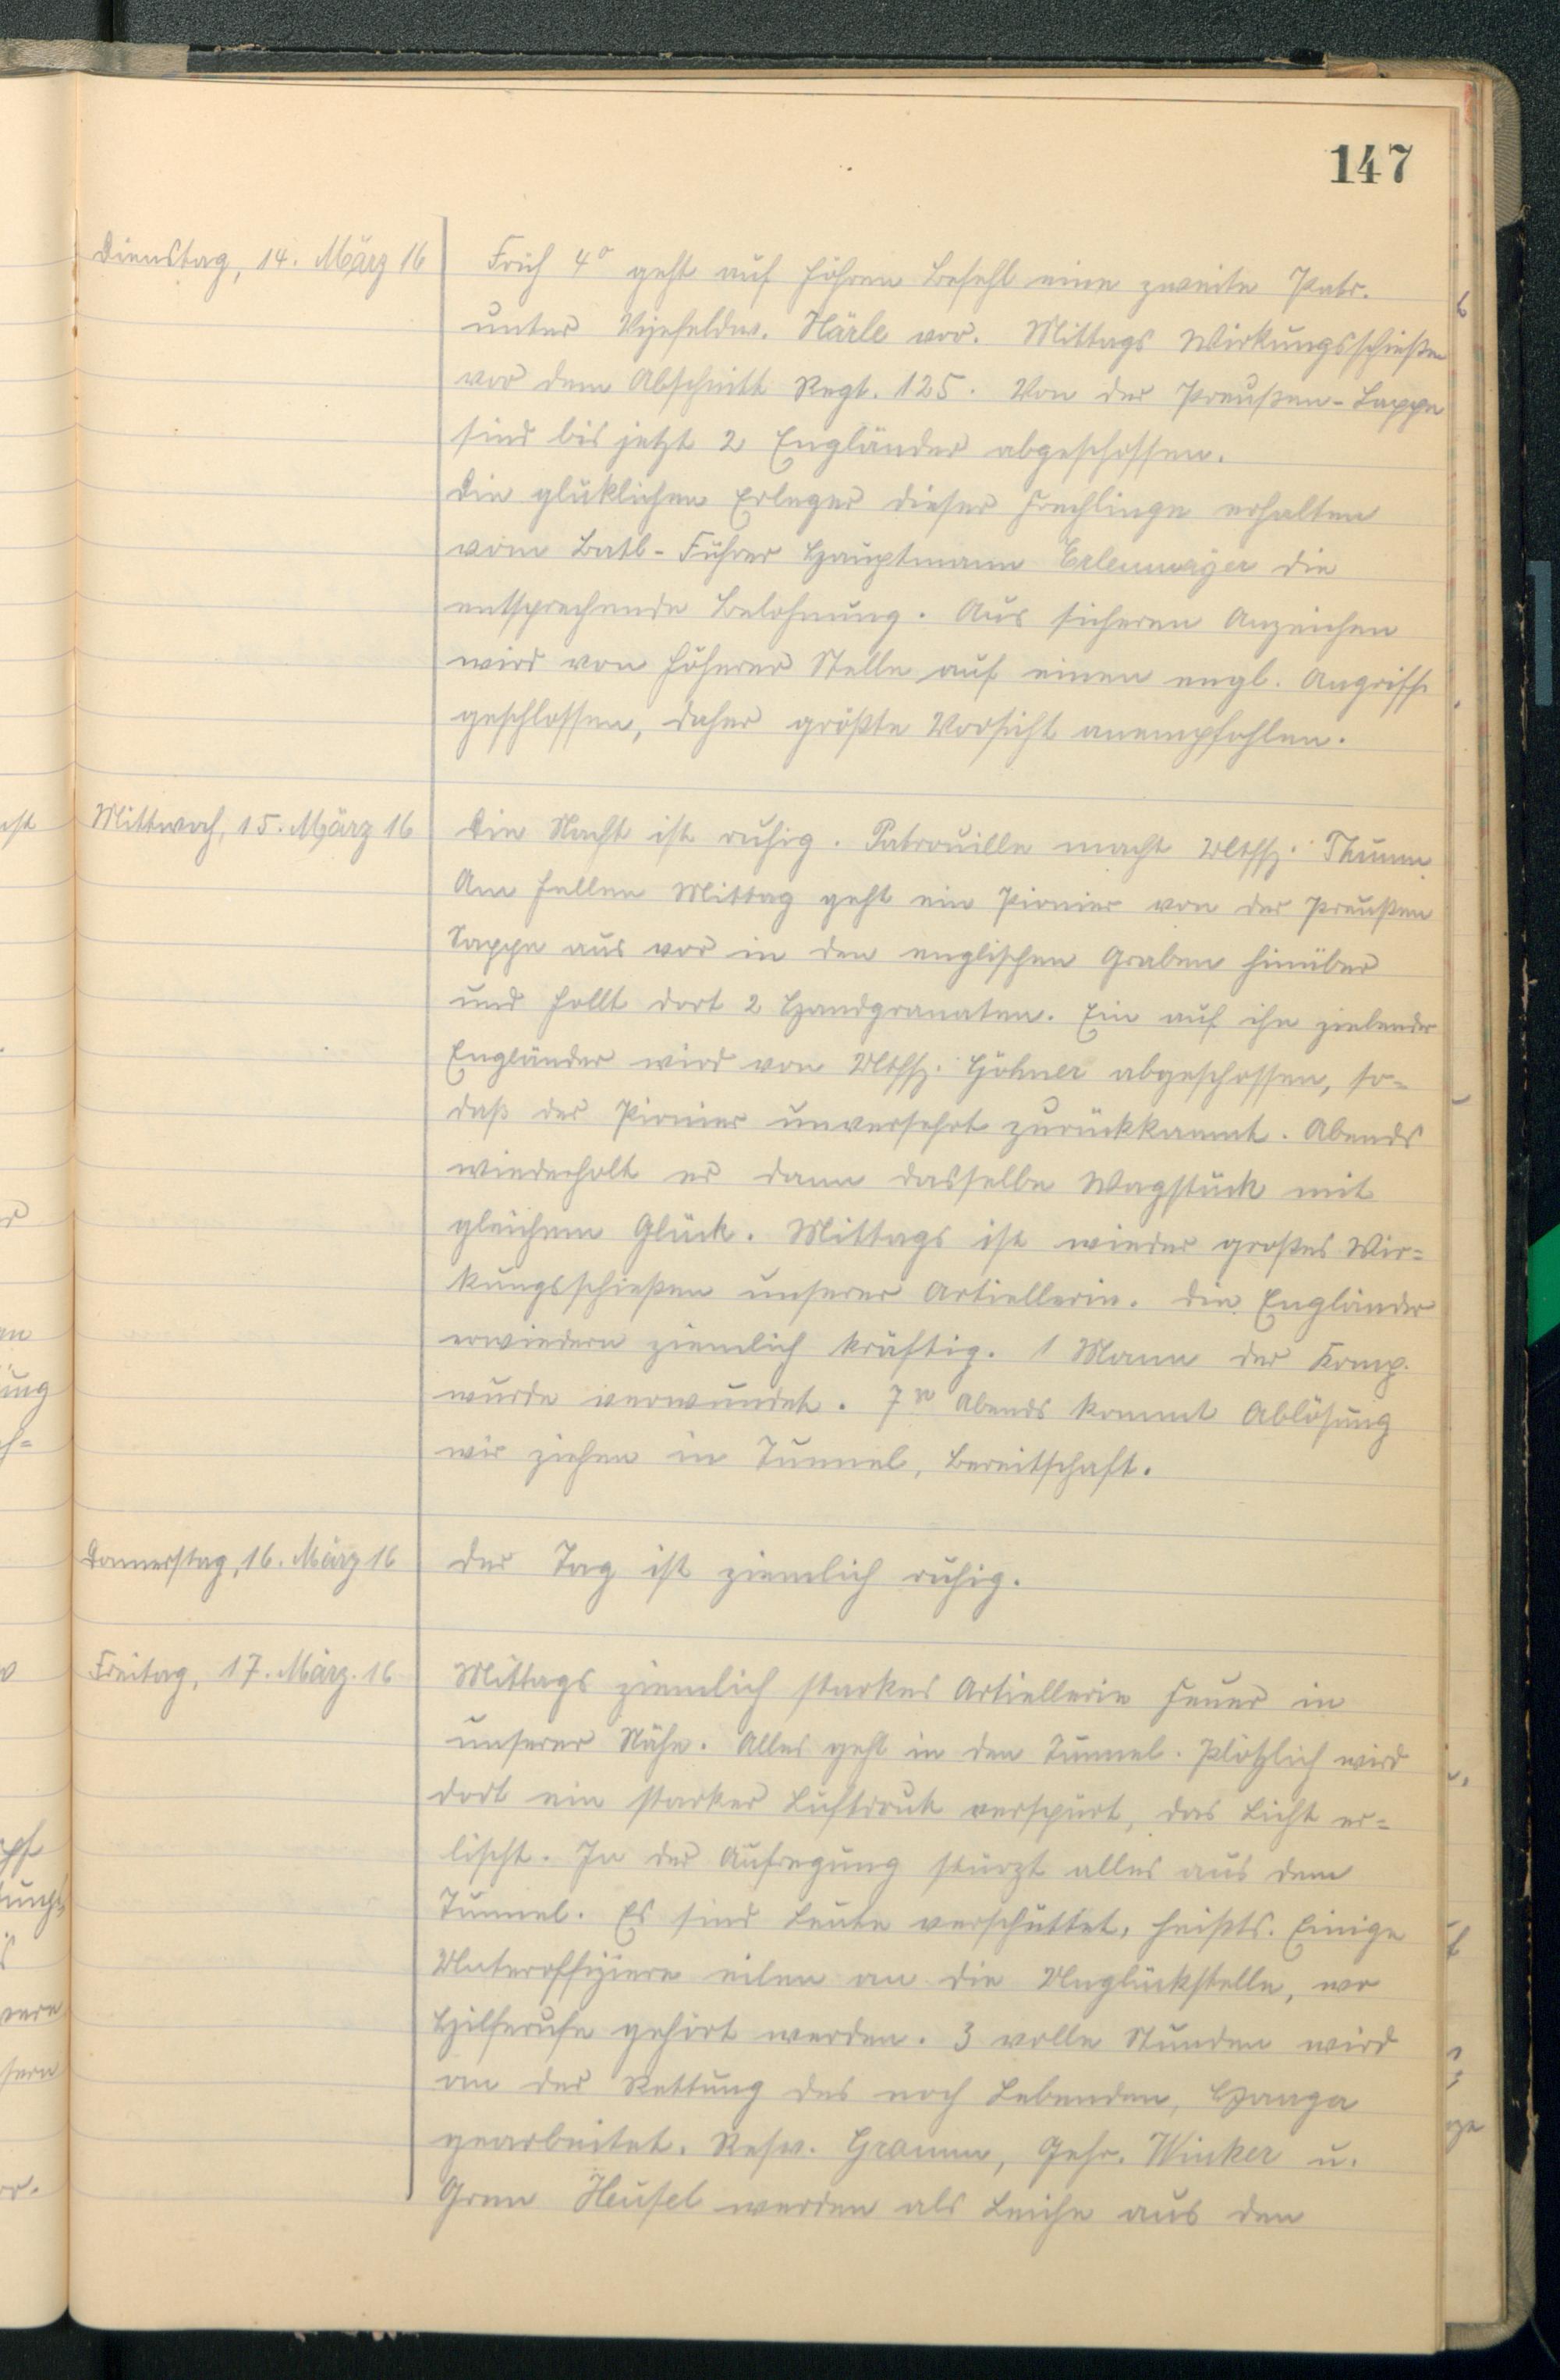 147
Dienstag, 14. März 16
Früh 4° geht auf höhren Befehl eine zweite Patr.
unter Vizefeldw. Härle vor. Mittags Wirkungsschießen
vor dem Abschnitt Regt. 125. Von der Preußen-Sappe
sind bis jetzt 2 Engländer abgeschossen.
Die glüklichen Erleger dieser Frechlinge erhalten
vom Batl-Führer Hauptmann Erlenmayer die
entsprechende Belohnung. Aus sicheren Anzeichen
wird von höherer Stelle auf einen engl. Angriff
geschlossen, daher größte Vorsicht anempfohlen.
Mittwoch, 15. März 16
Die Nacht ist ruhig. Patrouille macht Utffz. Thumm.
Am hellen Mittag geht ein Pionier von der Preußen
Sappe aus vor in den englischen Graben hinüber
und hollt dort 2 Handgranaten. Ein auf ihn zielender
Engländer wird von Utffz. Göhner abgeschossen, so=
daß der Pionier unversehrt zurückkammt. Abends
wiederholt er dann dasselbe Wagstück mit
gleichem Glück. Mittags ist wieder großes Wir=
kungsschießen unserer Artiellerie. Die Engländer
erwiedern ziemlich kräftig. 1 Mann der Komp.
wurde verwundet. 7 Abends kommt Ablösung
wir ziehen in Tunnel, Bereitschaft.
Donnerstag, 16. März 16
Der Tag ist ziemlich ruhig.
Freitag, 17. März. 16
Mittags ziemlich starkes Artiellerie Feuer in
unserer Nähe. Alles geht in den Tunnel. Plötzlich wird
dort ein starker Luftdruk verspürt, das Licht er=
lischt. In der Aufregung stürzt alles aus dem
Tunnel. Es sind Leute verschüttet, heißts. Einige
Unteroffiziere eilen an die Unglückstelle, wo
Hilferufe gehört werden. 3 volle Stunden wird
an der Rettung des noch Lebenden, Haaga
gearbeitet. Resv. Gramm, Gefr. Winker u.
Gren Heusel werden als Leiche aus den